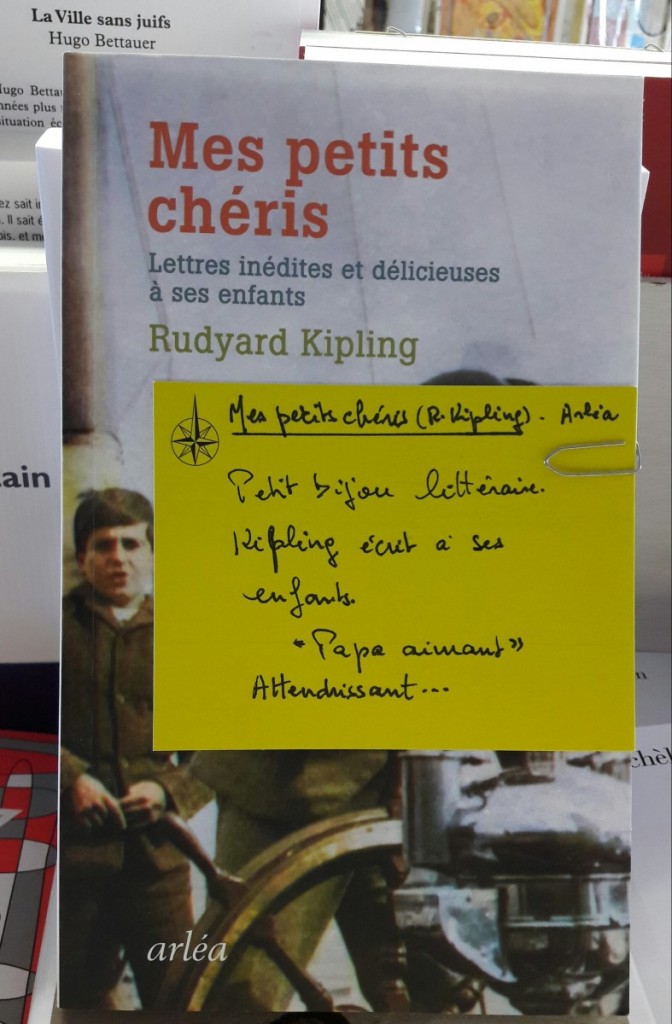 La Ville sans juifs
Hugo Bettauer
Hugo Betta
nnées plus
situation éc
ez sait
. Il sait é
ois. et m
ain
Mes petits
chéris
Lettres inédites et délicieuses
à ses enfants
Rudyard Kipling
Mes petits chéris (R. Kipling). Arléa
Petit bijou littéraire.
Kipling écrit à ses
enfants.
"Papa aimant"
Attendrissant...
chèl
arléa